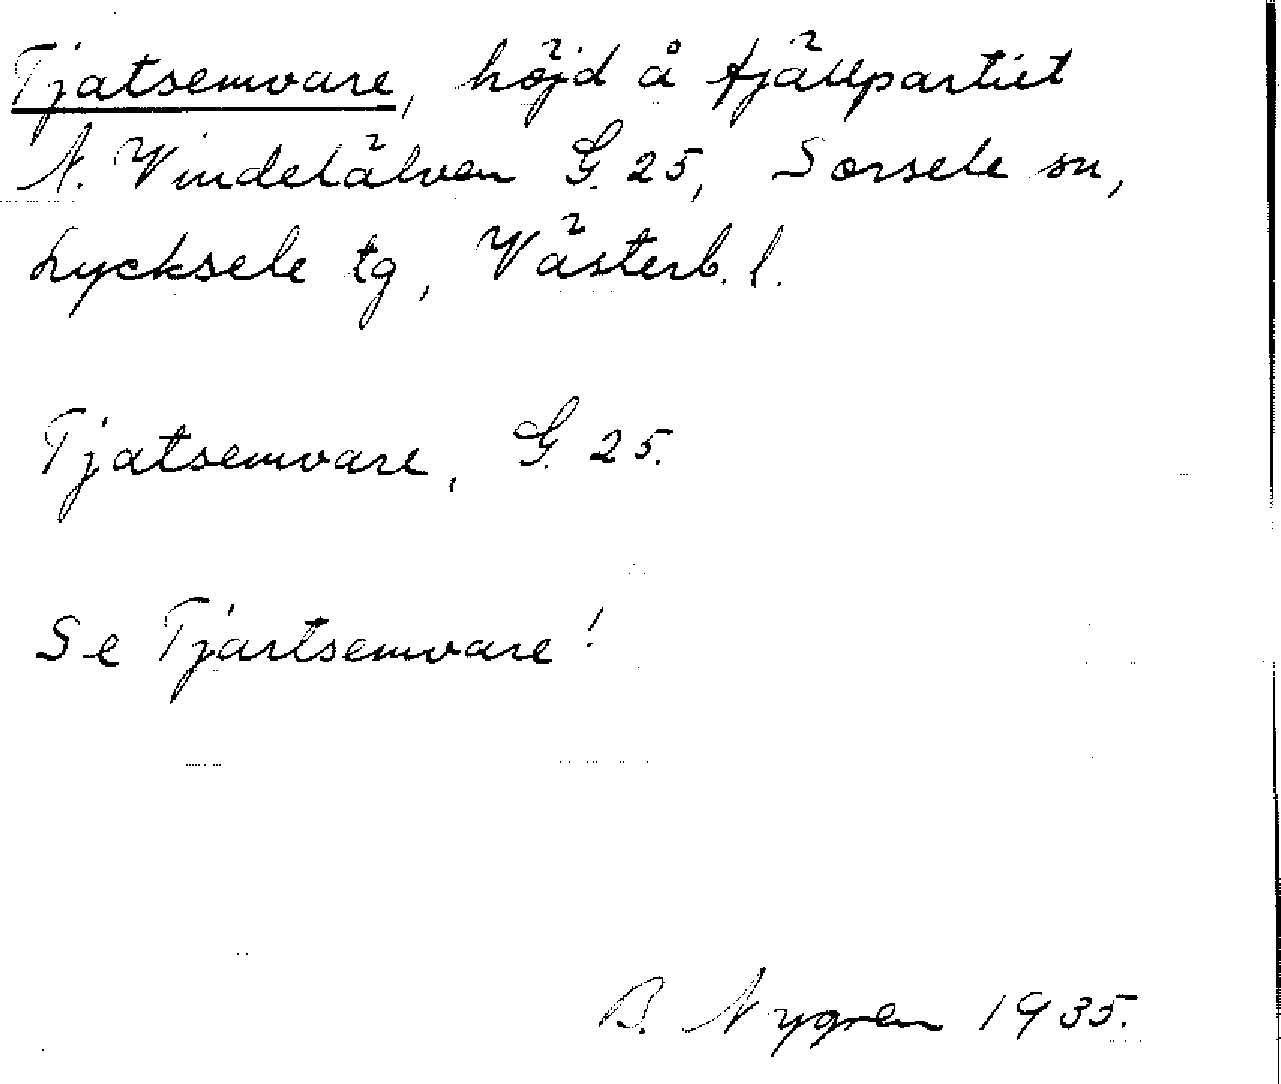 Tjatsemvare, höjd å fjällpartiet
N. Vindelälven G. 25, Sorsele sn,
Lycksele tg, Västerb. l.
Tjatsemvare, G. 25.
Se Tjartsemvare!
B. Nygren 1935.